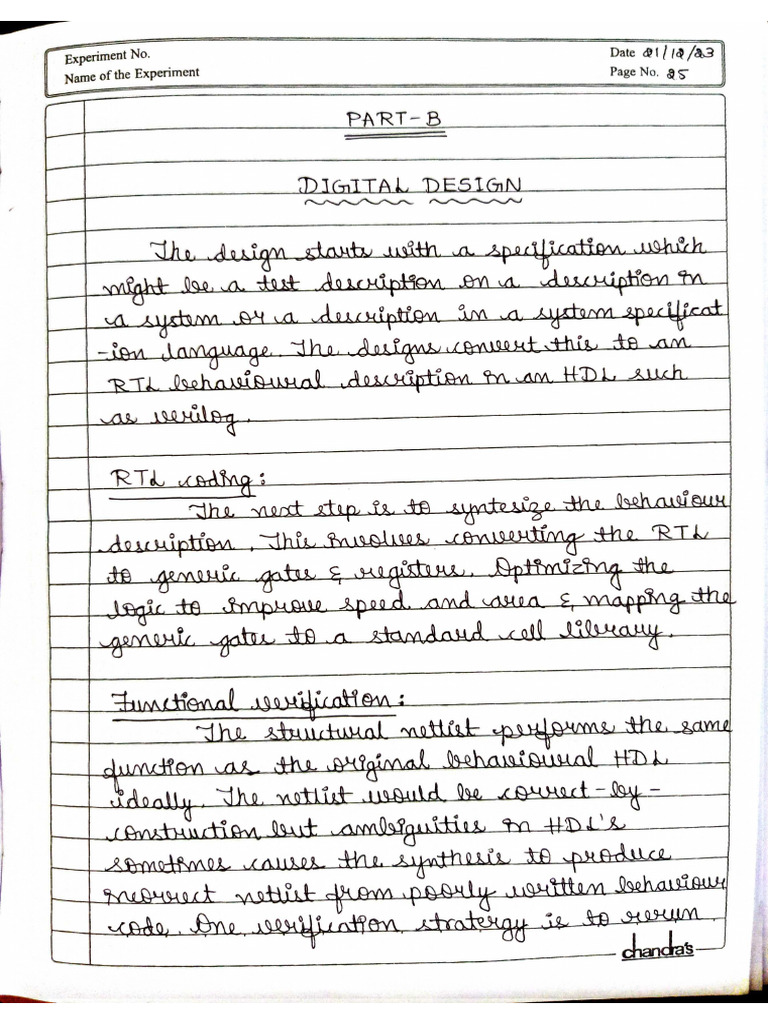 Experiment No.
Date 21/12/23
Name of the Experiment
Page No. 25
PART-B
DIGITAL DESIGN
The design starts with a specification which
might be a test description on a description in
a system or a description in a system specificat
-ion language. The designs convert this to an
RTL behavioural description in an HDL such
as verilog.
RTL coding:
The next step is to syntesize the behaviour
description. This involves converting the RTL
to generic gates & registers. Optimizing the
logic to improve speed and area & mapping the
generic gates to a standard cell library.
Functional verification:
The structural netlist performs the same
function as the original behavioural HDL
ideally. The netlist would be correct-by-
construction but ambiguities in HDL's
sometimes causes the synthesis to produce
incorrect netlist from poorly written behaviour
code. One verification stratergy is to rerun
chandra's